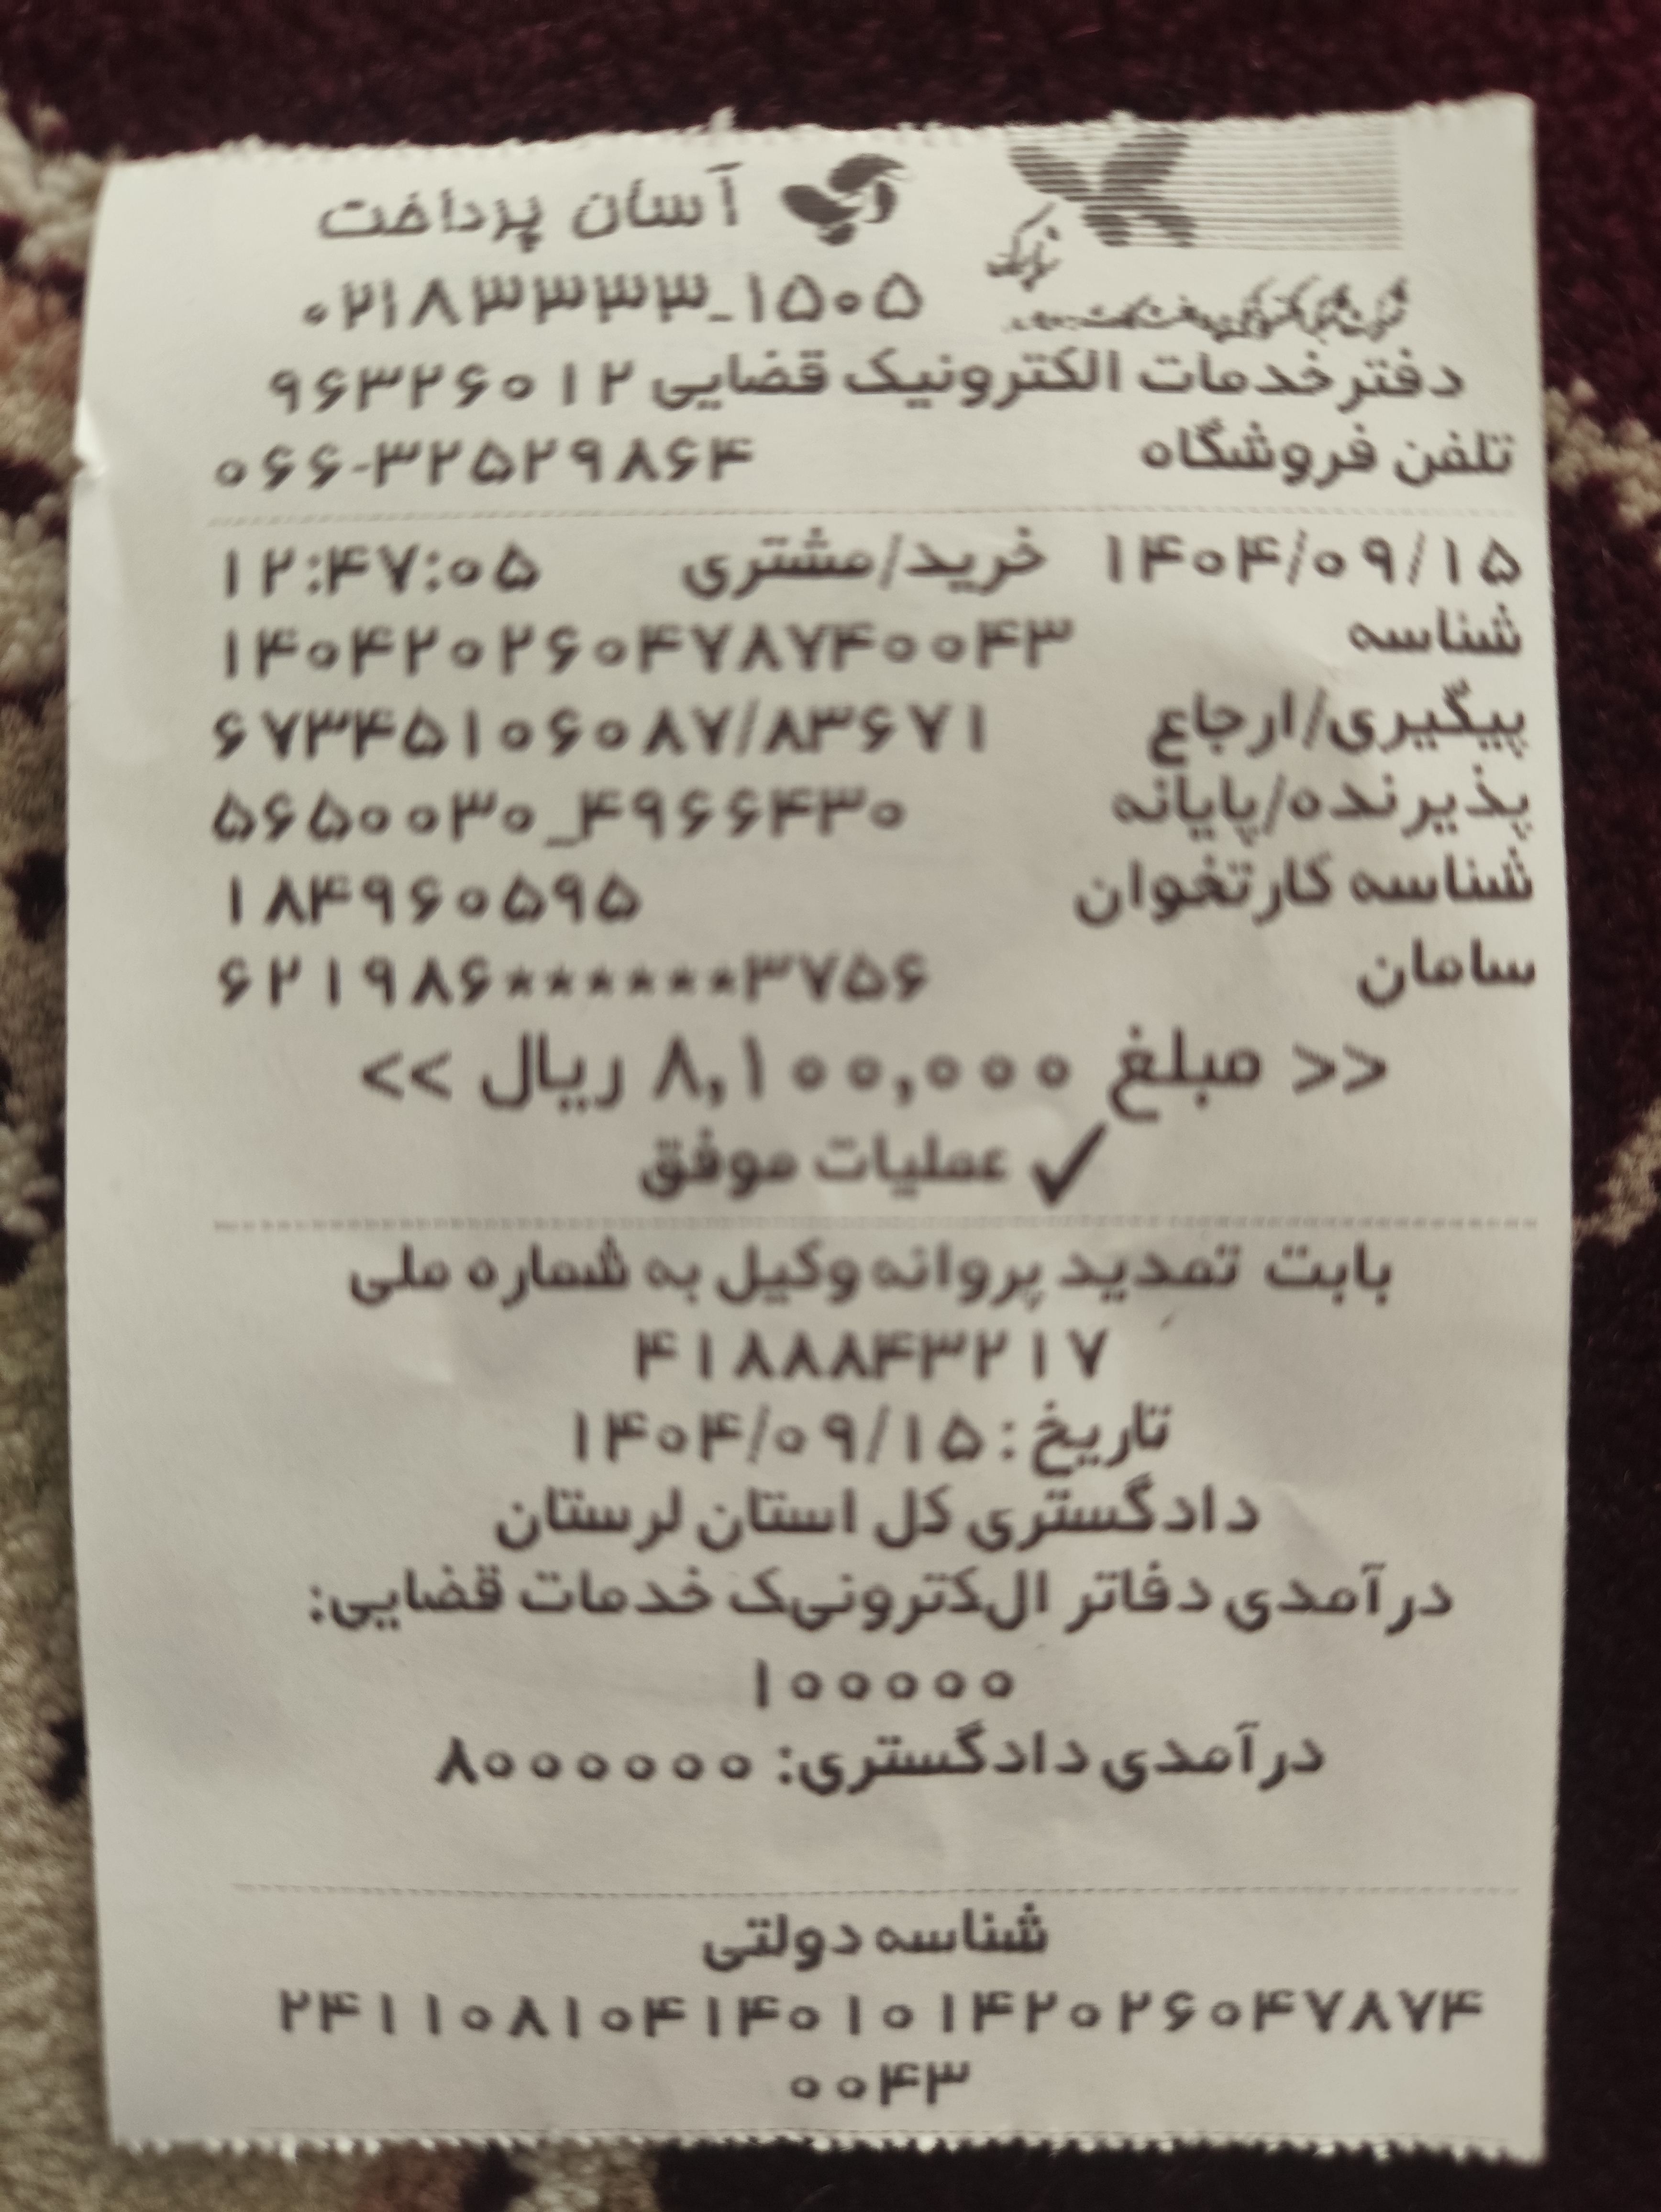 آسان پرداخت
۰۲۱۸۳۳۳۳_۱۵۰۵
دفترخدمات الکترونیک قضایی ۹۶۳۲۶۰۱۲
تلفن فروشگاه ۰۶۶-۳۲۵۲۹۸۶۴
۱۴۰۴/۰۹/۱۵ خرید/مشتری ۱۲:۴۷:۰۵
شناسه ۱۴۰۴۲۰۲۶۰۴۷۸۷۴۰۰۴۳
پیگیری/ارجاع ۶۷۳۴۵۱۰۶۰۸۷/۸۳۶۷۱
پذیرنده/پایانه ۵۶۵۰۰۳۰_۴۹۶۶۴۳۰
شناسه کارتخوان ۱۸۴۹۶۰۵۹۵
سامان ۶۲۱۹۸۶******۳۷۵۶
<< مبلغ ۸,۱۰۰,۰۰۰ ریال >>
✓ عملیات موفق
بابت تمدید پروانه وکیل به شماره ملی
۴۱۸۸۸۴۳۲۱۷
تاریخ: ۱۴۰۴/۰۹/۱۵
دادگستری کل استان لرستان
درآمدی دفاتر الکترونیک خدمات قضایی:
۱۰۰۰۰۰
درآمدی دادگستری: ۸۰۰۰۰۰۰
شناسه دولتی
۲۴۱۱۰۸۱۰۴۱۴۰۱۰۱۴۲۰۲۶۰۴۷۸۷۴
۰۰۴۳